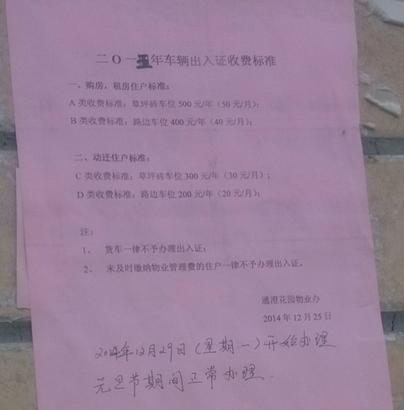 二〇一五年车辆出入证收费标准
一、购房、租房住户标准：
A 类收费标准：草坪砖车位 500 元/年（50 元/月）；
B 类收费标准：路边车位 400 元/年（40 元/月）；
二、动迁住户标准：
C 类收费标准：草坪砖车位 300 元/年（30 元/月）；
D 类收费标准：路边车位 200 元/年（20 元/月）；
注：
1、 货车一律不予办理出入证；
2、 未及时缴纳物业管理费的住户一律不予办理出入证。
通澄花园物业办
2014 年 12 月 25 日
2014年12月29日（星期一）开始办理
元旦节期间正常办理.